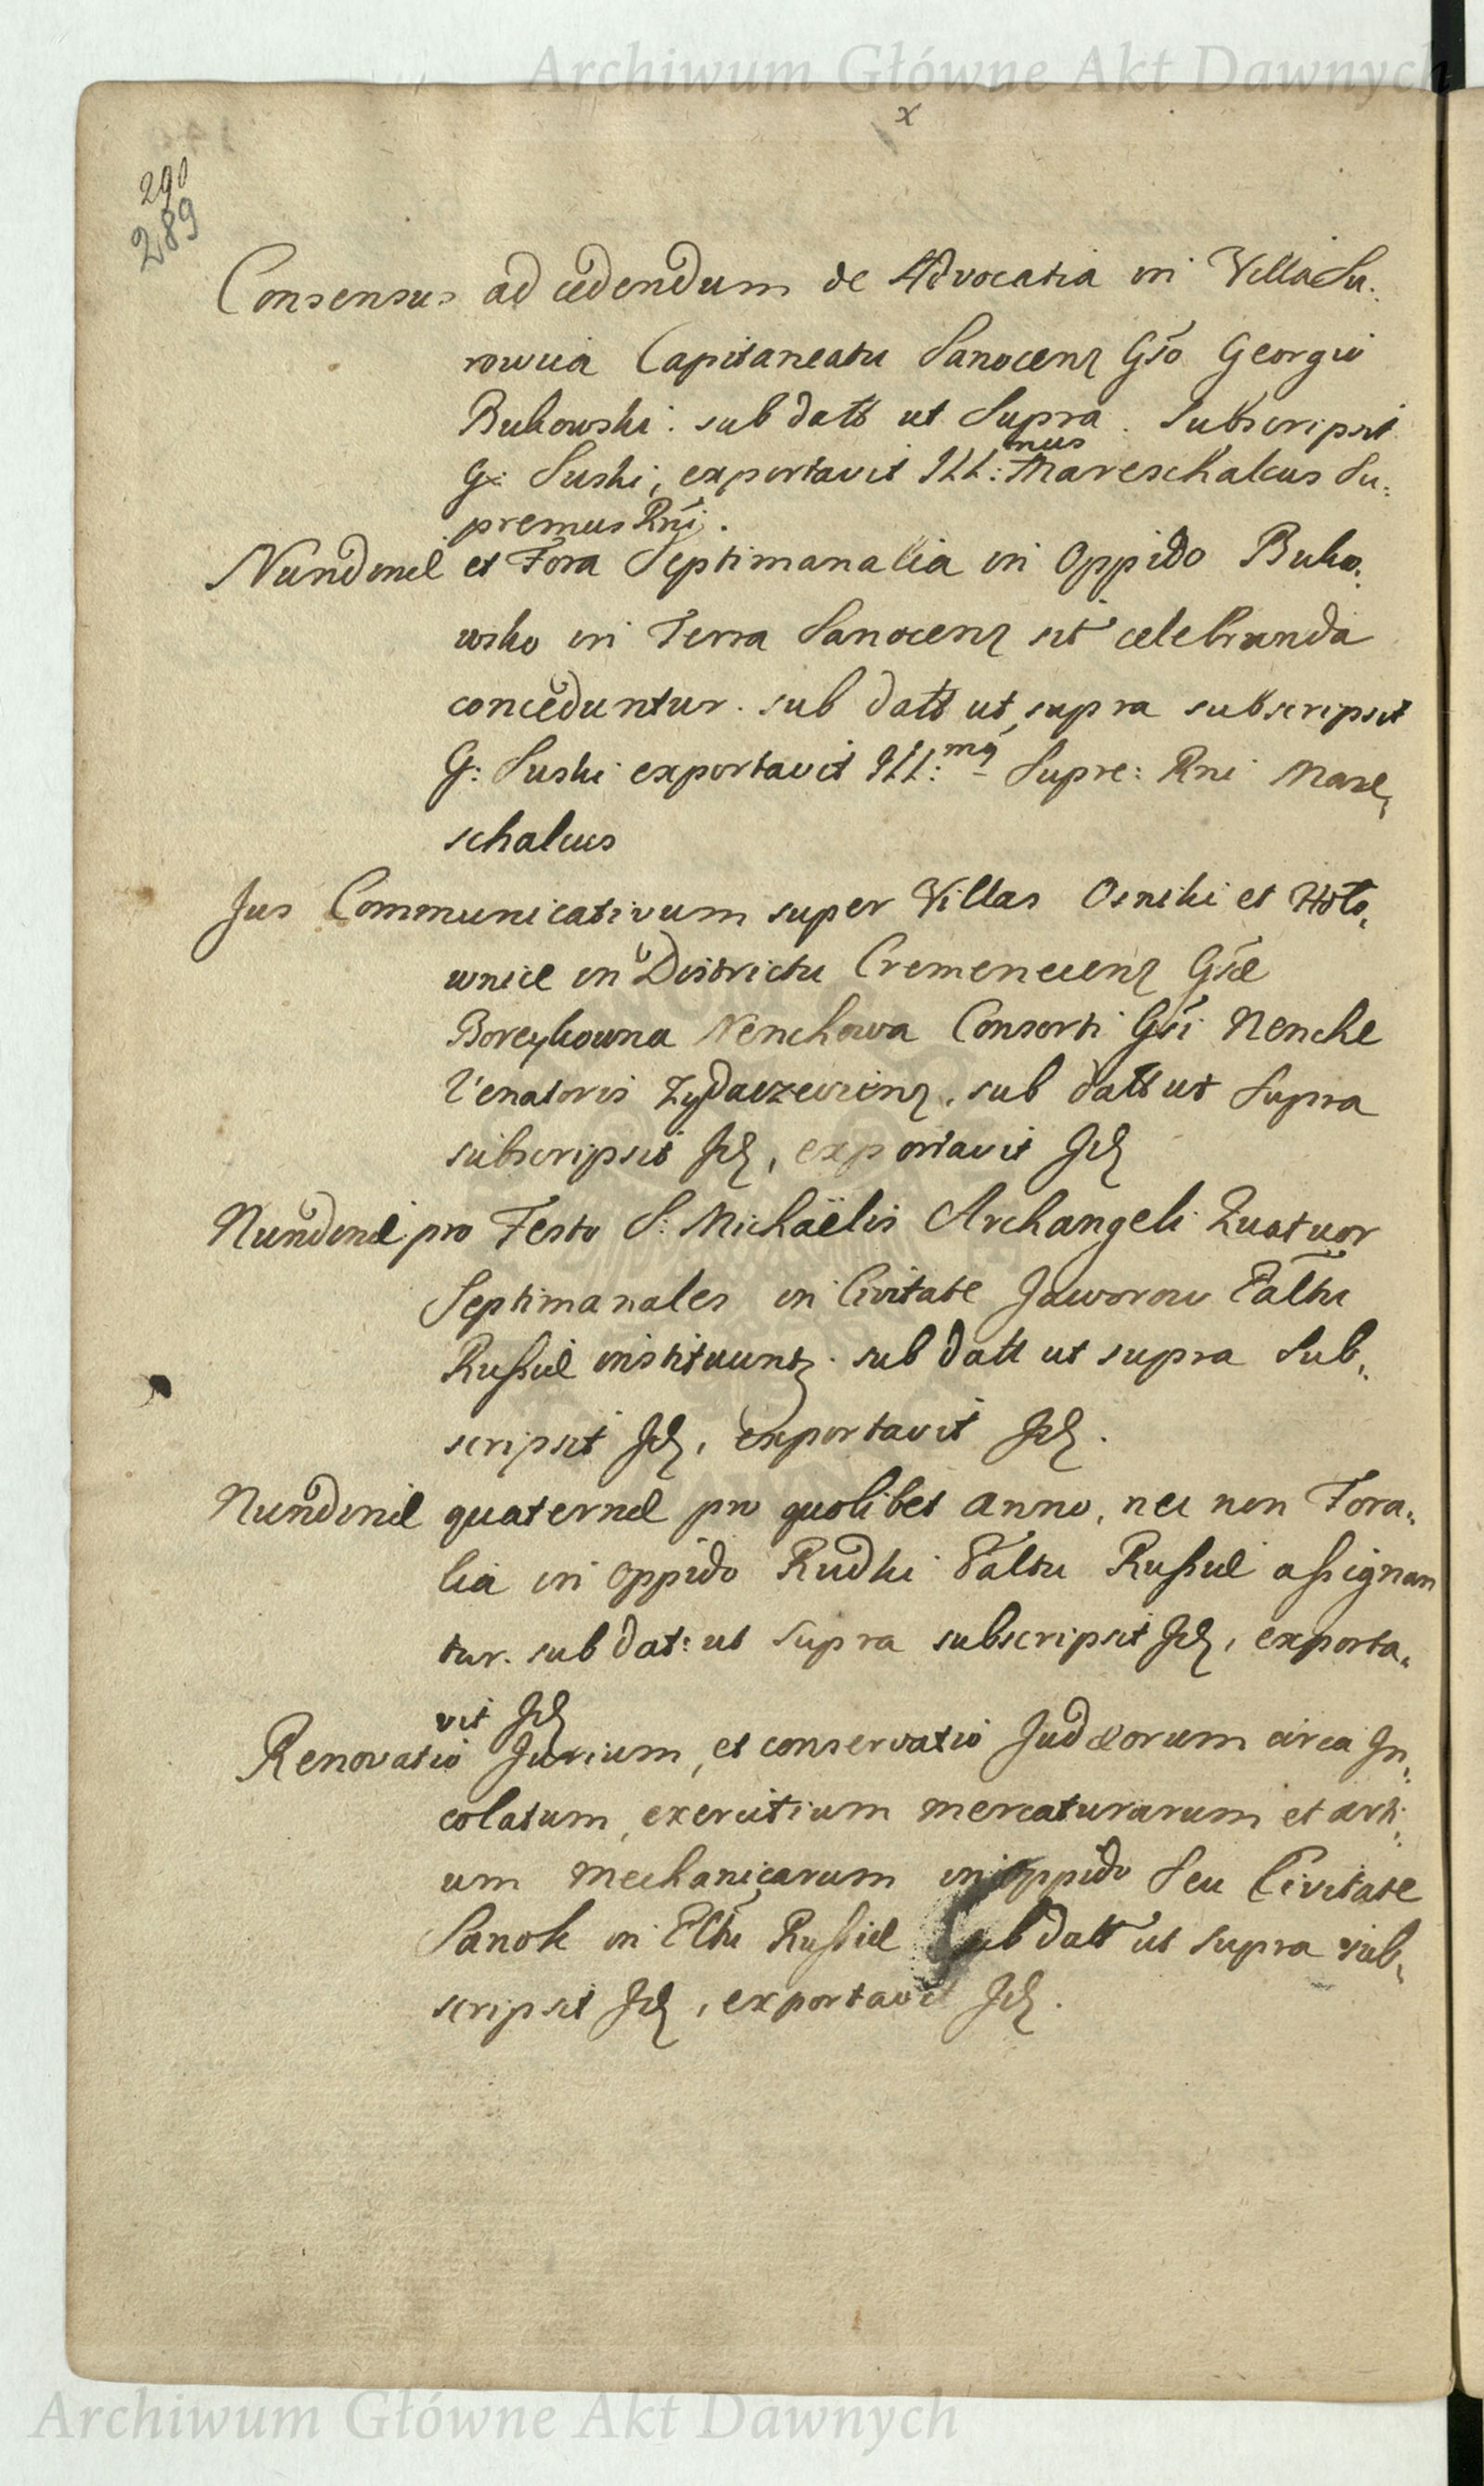 Archiwum Główne Akt Dawnych
x
290
289
Consensus ad cedendum de Advocatia in Villa Su:
rowica Capitaneatu Sanocen Gso Georgio
Bukowski. sub datt ut Supra. Subscripsit
G: Suski, exportavit Ill:mus Mareschalcus Su:
premus Rni.
Nundinæ et Fora Septimanalia in Oppido Buko:
wsko in Terra Sanocen sit celebranda
conceduntur. sub datt ut supra subscripsit
G: Suski exportavit Ill:mg Supre: Rni Mare,
schalcus
Jus Communicativum super Villas Osniki et Hoło,
wnice in Districtu Cremenecen Gsæ
Boreykowna Nenchowa Consorti Gsi Nenche
Venatoris Zydaczewien. sub datt ut Supra
subscripsit Jd, exportavit Jd
Nundinæ pro Festo S: Michaëlis Archangeli Quatuor
Septimanales in Civitate Jaworow Pältu
Russiæ instituunt. sub datt ut supra Sub,
scripsit Jd, exportavit Jd.
Nundinæ quaternæ pro quolibet anno, nec non Fora,
lia in Oppido Rudki Pältu Russiæ assignan
tur. sub dat: ut Supra subscripsit Jd, exporta,
vit Jd
Renovatio Jurium, et conservatio Judæorum circa In,
colatum, exercitium mercaturarum et arti,
um mechanicarum in Oppido Seu Civitate
Sanok in Pltu Russiæ Sub datt ut Supra sub,
scripsit Jd, exportavit Jd.
Archiwum Główne Akt Dawnych